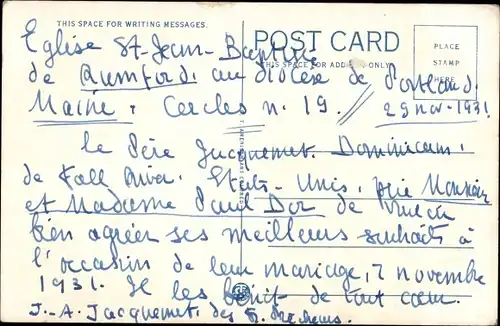 THIS SPACE FOR WRITING MESSAGES.
POST CARD
THIS SPACE FOR ADD ONLY
PLACE
STAMP
HERE
Eglise St-Jean-Baptiste
de Rumford, au diocèse de Portland.
Maine. Cercles n. 19. 29 nov. 1931.
le Père Jacquemet. Dominicain,
de Fall River. Etats-Unis, prie Monsieur
et Madame Paul Dor de vouloir
bien agréer ses meilleurs souhaits à
l'occasion de leur mariage, 7 novembre
1931. Je les bénit de tout cœur.
J.-A. Jacquemet, des f. Prêcheurs.